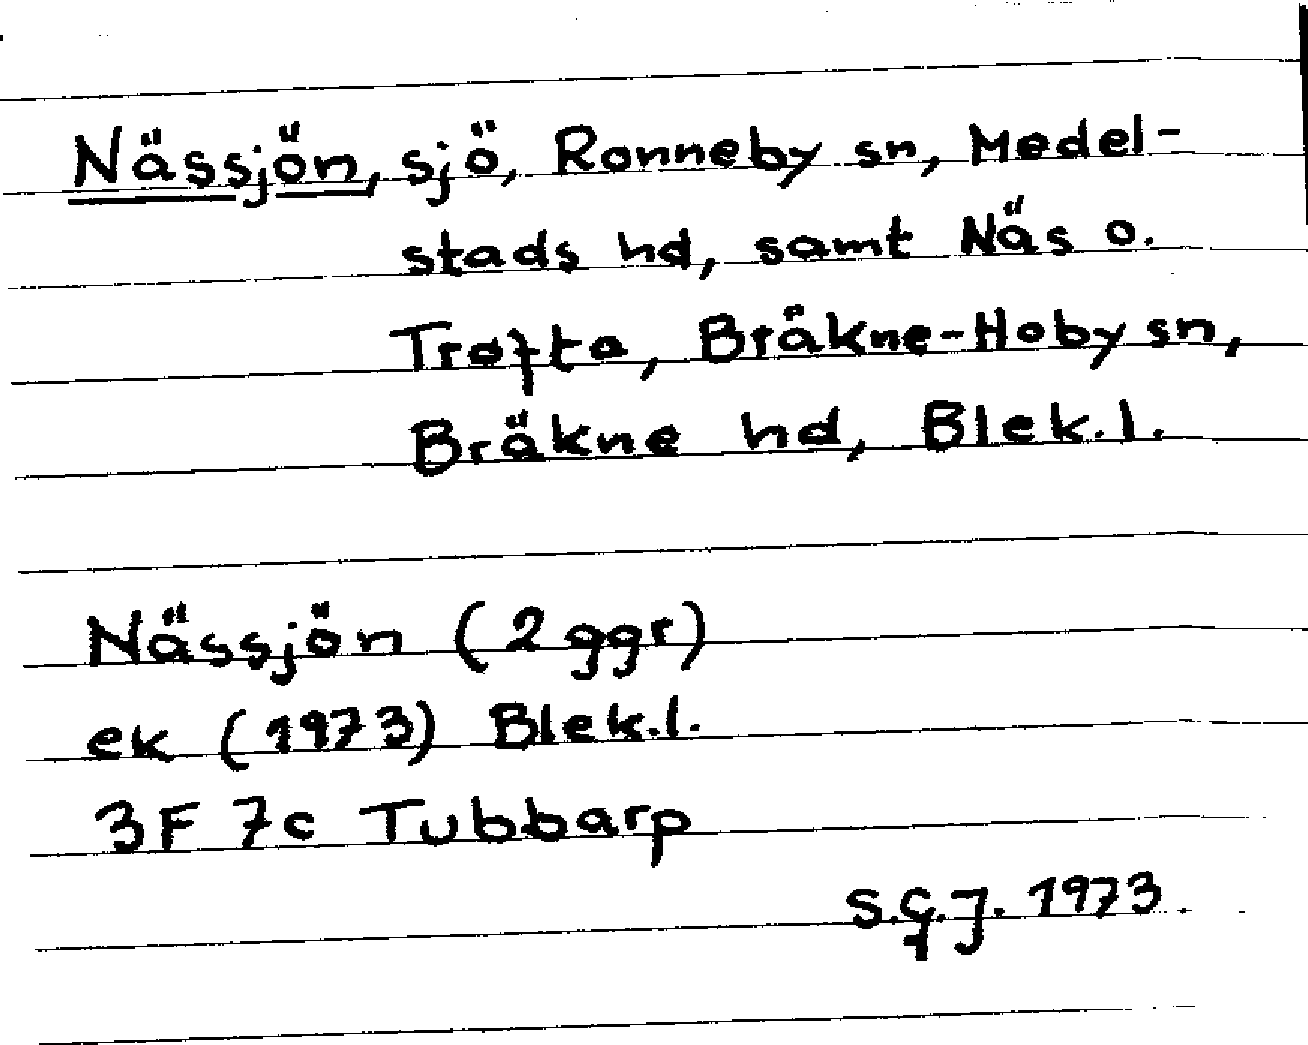 Nässjön, sjö, Ronneby sn, Medel-
stads hd, samt Näs o.
Trofta, Bräkne-Hoby sn,
Bräkne hd, Blek.l.
Nässjön (2 ggr)
ek (1973) Blek.l.
3F 7c Tubbarp
S.G.J. 1973.